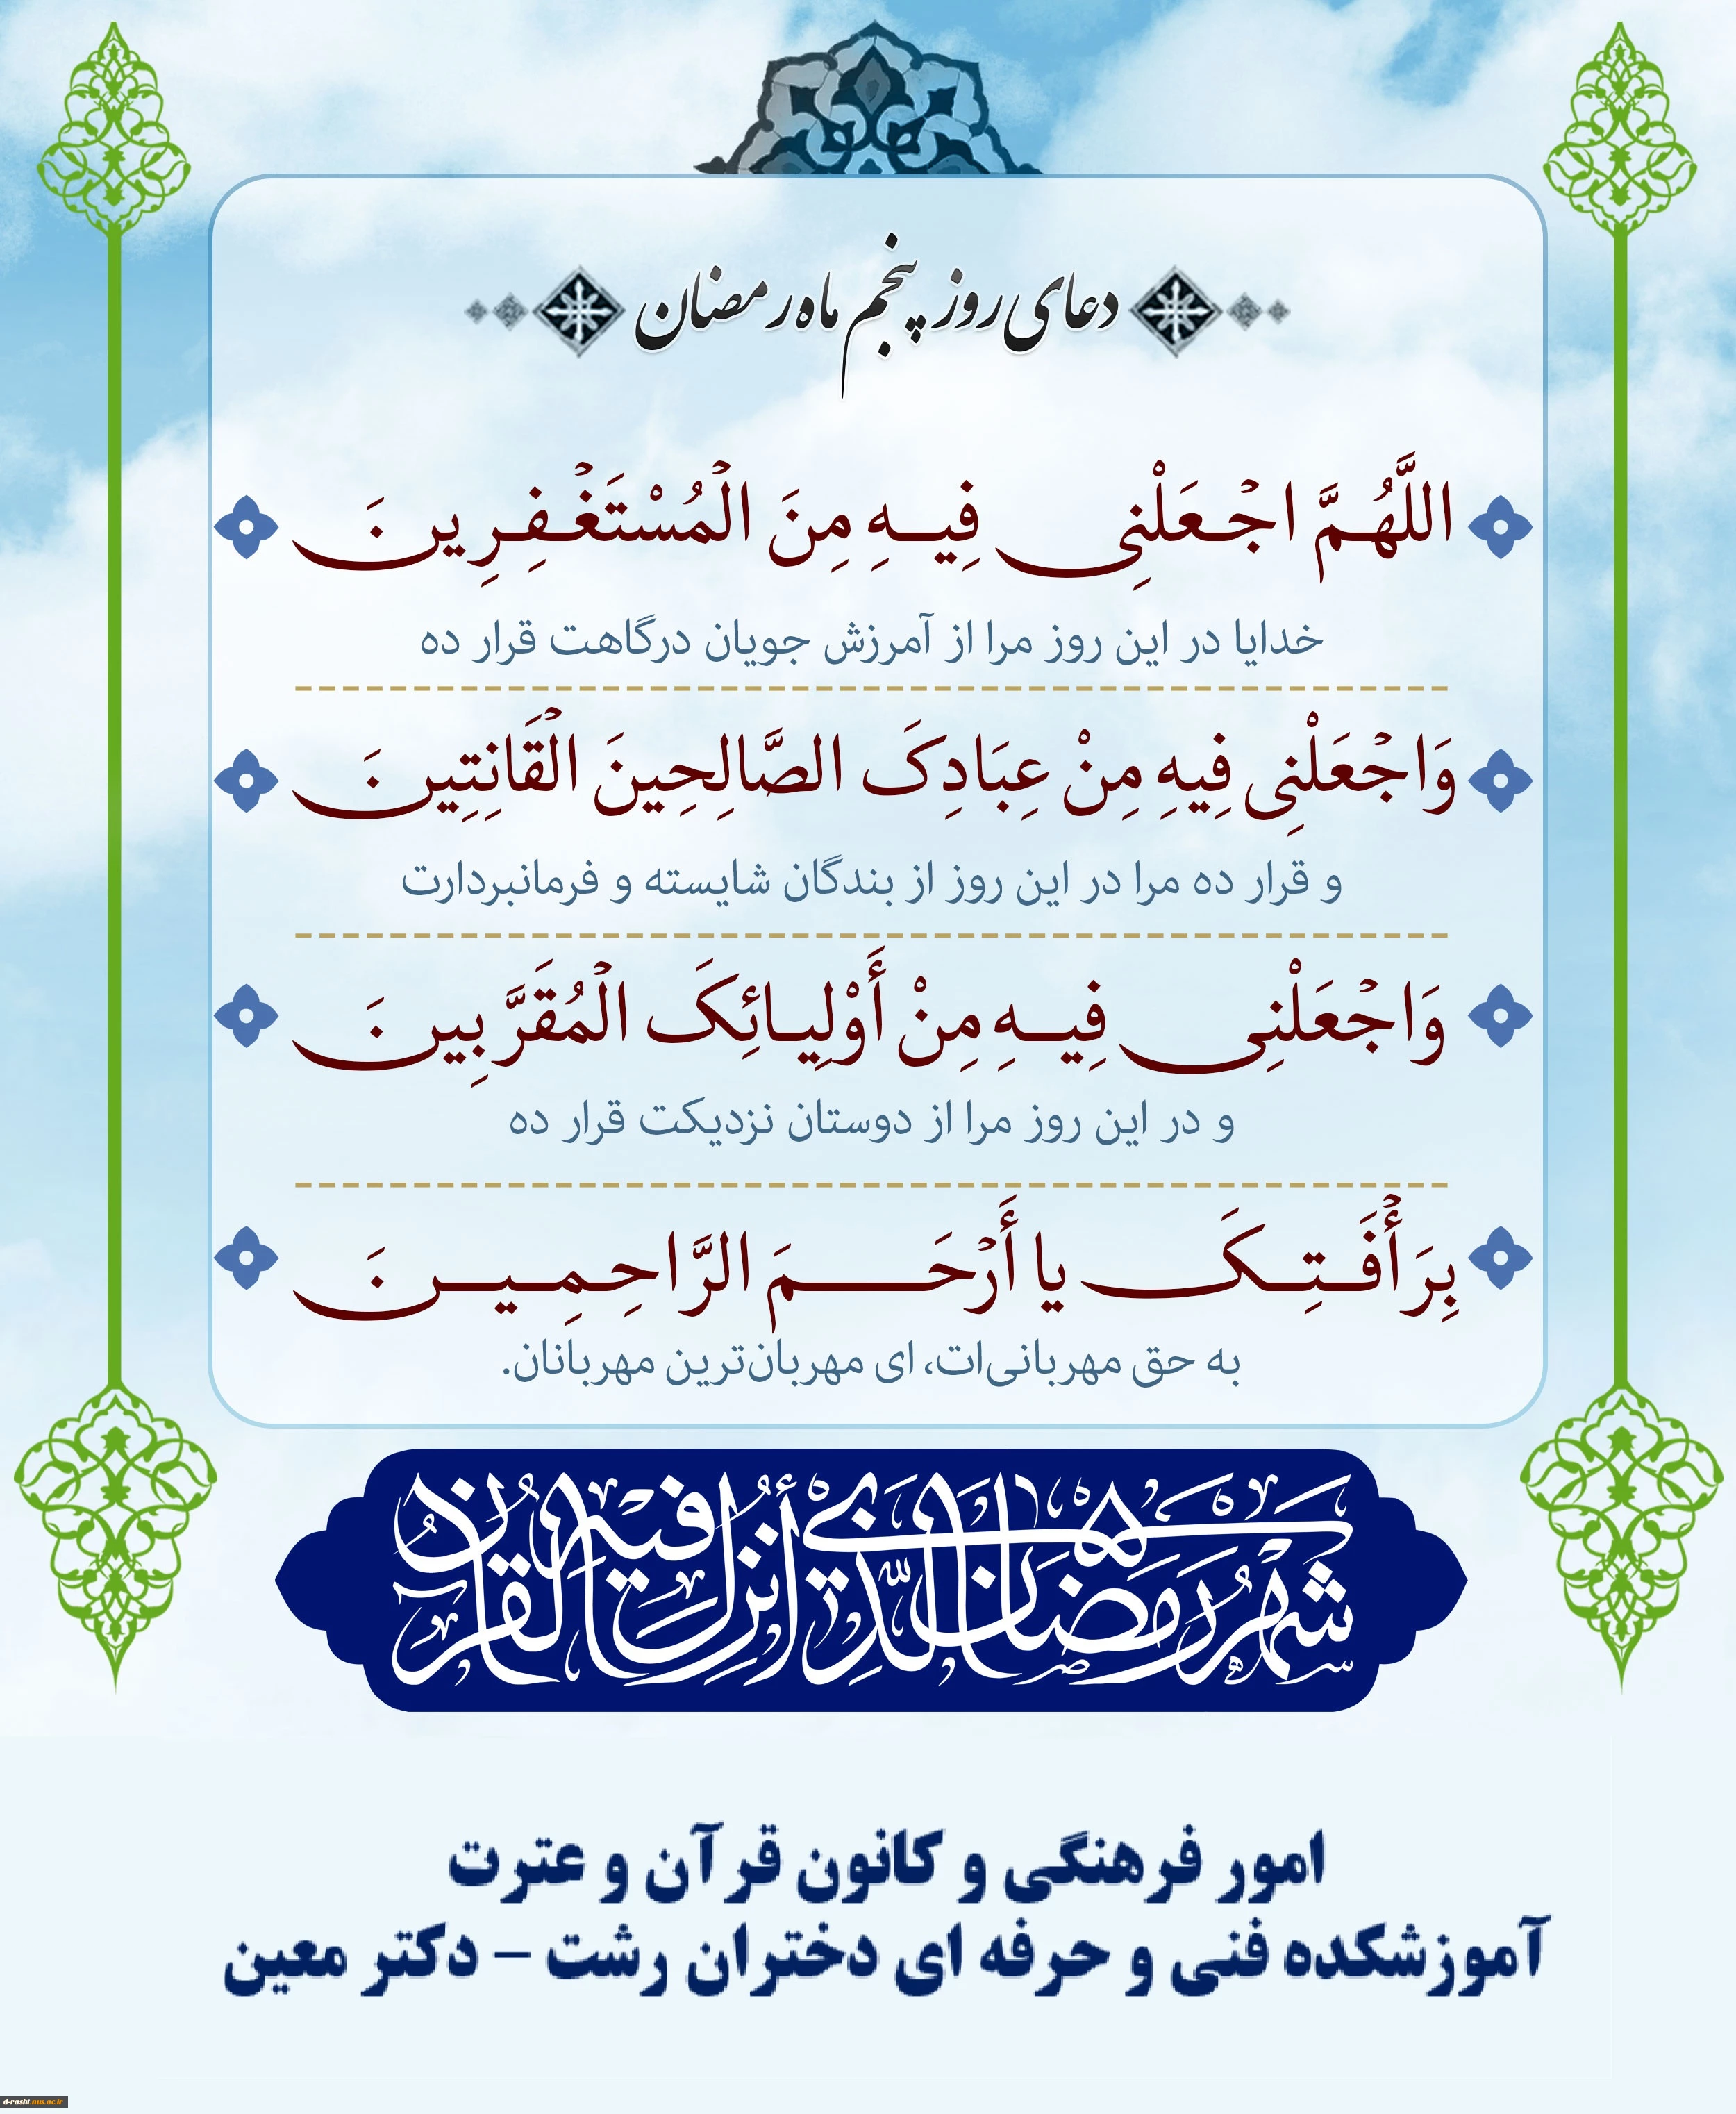 دعای روز پنجم ماه رمضان
اللَّهُمَّ اجْعَلْنِی فِیهِ مِنَ الْمُسْتَغْفِرِینَ
خدایا در این روز مرا از آمرزش جویان درگاهت قرار ده
وَاجْعَلْنِی فِیهِ مِنْ عِبَادِکَ الصَّالِحِینَ الْقَانِتِینَ
و قرار ده مرا در این روز از بندگان شایسته و فرمانبردارت
وَاجْعَلْنِی فِیهِ مِنْ أَوْلِیائِکَ الْمُقَرَّبِینَ
و در این روز مرا از دوستان نزدیکت قرار ده
بِرَأْفَتِکَ یا أَرْحَمَ الرَّاحِمِینَ
به حق مهربانی‌ات، ای مهربان‌ترین مهربانان.
شهر رمضان الذی أنزل فیه القرآن
امور فرهنگی و کانون قرآن و عترت
آموزشکده فنی و حرفه ای دختران رشت – دکتر معین
d-rasht.nus.ac.ir